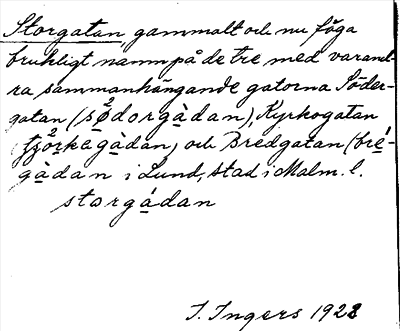 Storgatan, gammalt och nu föga
brukligt namn på de tre med varand-
ra sammanhängande gatorna Söder-
gatan (sø̀²dorgàdan), Kyrkogatan
(tjö̀²rkegàdan) och Bredgatan (bré-
gàdan i Lund, stad i Malm. l.
storgádan
I. Ingers 1928